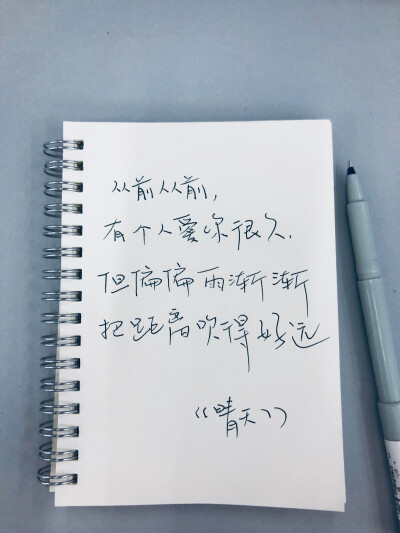 从前从前,
有个人爱你很久.
但偏偏雨渐渐
把距离吹得好远
《晴天》